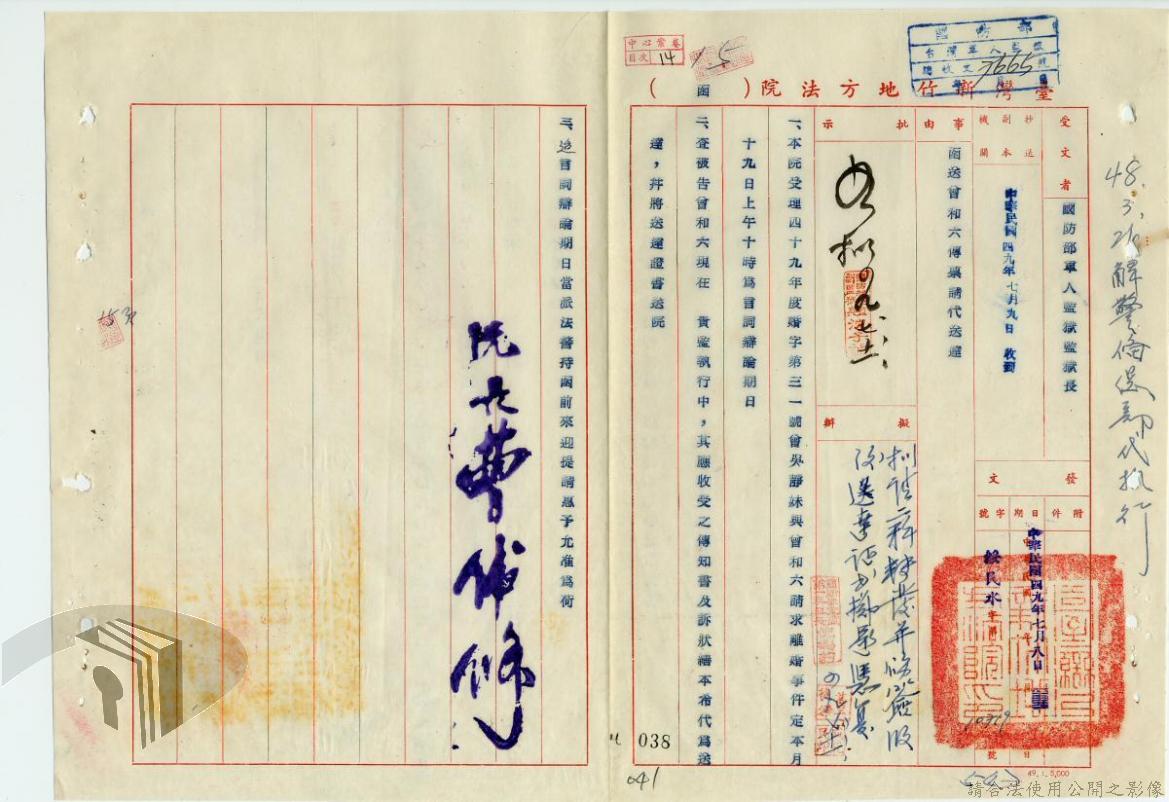 臺灣新竹地方法院(　　)函
國防部
台灣軍人監獄
總收文 7665 號
中心案卷
目次 14
受文者
國防部軍人監獄監獄長
抄送
副本
機關
中華民國四九年七月九日 收到
發文
附件
日期
字號
中華民國四九年七月八日
事由
函送曾和六傳票請代送達
批示
擬辦
一、本院受理四十九年度婚字第三一號曾吳靜妹與曾和六請求離婚事件定本月
十九日上午十時為言詞辯論期日
二、查被告曾和六現在　貴監執行中，其應收受之傳知書及訴狀繕本希代為送
達，并將送達證書送院
三、迨言詞辯論期日當派法警持函前來迎提請惠予允准為荷
院長曹偉修
解警備總部代執行
038
041
49.1.5,000
請合法使用公開之影像